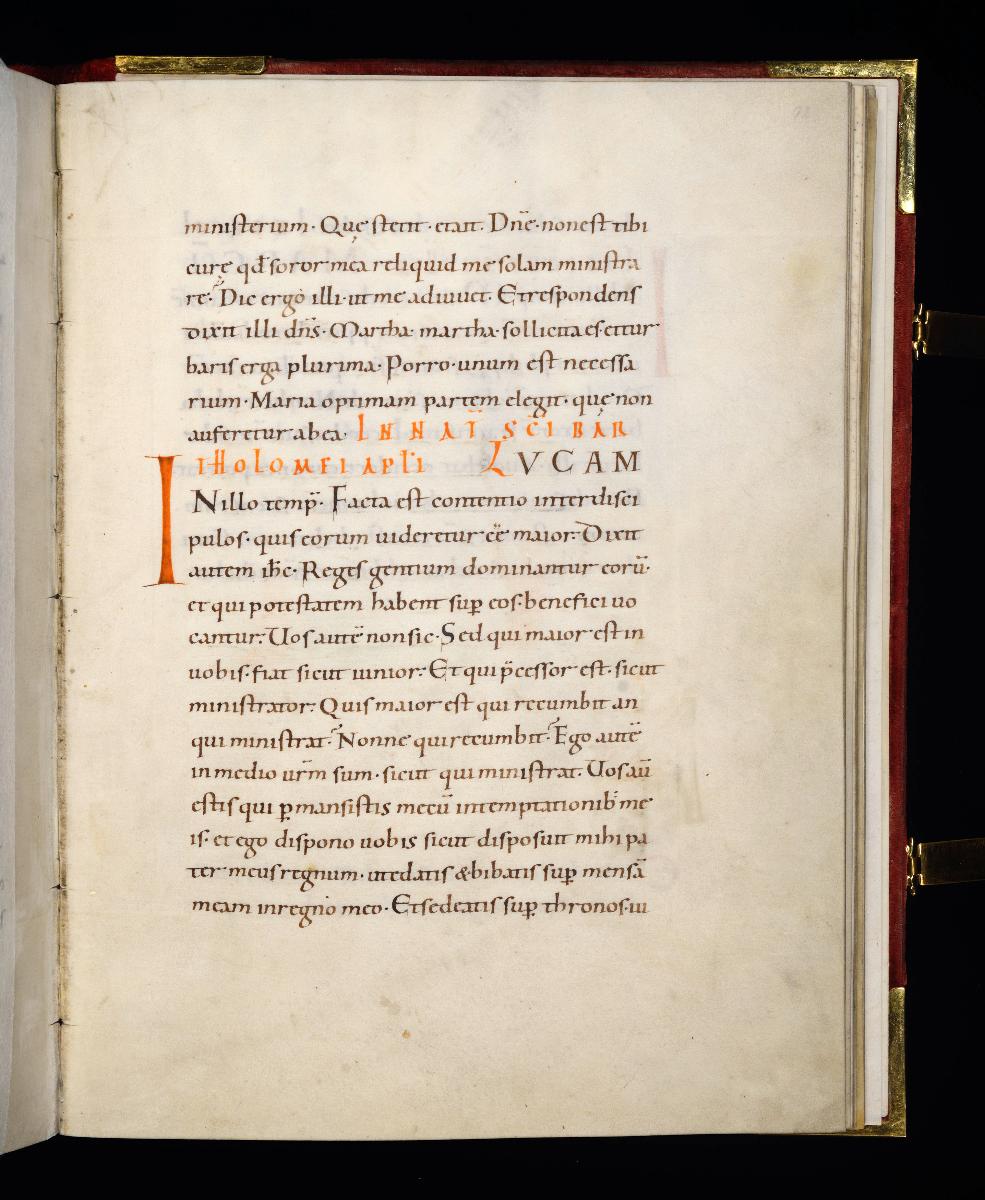 ministerium· Quę stetit· et ait· Dñe· non est tibi
curę qđ soror mea reliquid me solam ministra
re· Dic ergo illi· ut me adiuuet· Et respondens
dixit illi dñs· Martha· martha· sollicita es et tur
baris erga plurima· Porro· unum est necessa
rium· Maria optimam partem elegit· quę non
auferetur ab ea· IN NAT̄ SC̄I BAR
THOLOMEI APL̄I LVCAM
INillo temp̄· Facta est contentio inter disci
pulos· quis eorum uideretur eē maior· Dixit
autem ihc̄· Reges gentium dominantur eorū·
et qui potestatem habent sup̱ eos· benefici uo
cantur· Uos autē non sic· Sed qui maior est in
uobis· fiat sicut iunior· Et qui p̄cessor est· sicut
ministrator· Quis maior est qui recumbit an
qui ministrat· Nonne qui recumbit· Ego autē
in medio ur̄m sum· sicut qui ministrat· Uos aū
estis qui ꝑmansistis mecū in temptationib; me
is· et ego dispono uobis sicut disposuit mihi pa
ter meus regnum· ut edatis & bibatis sup̱ mensā
meam in regno meo· Et sedeatis sup̱ thronos· iu